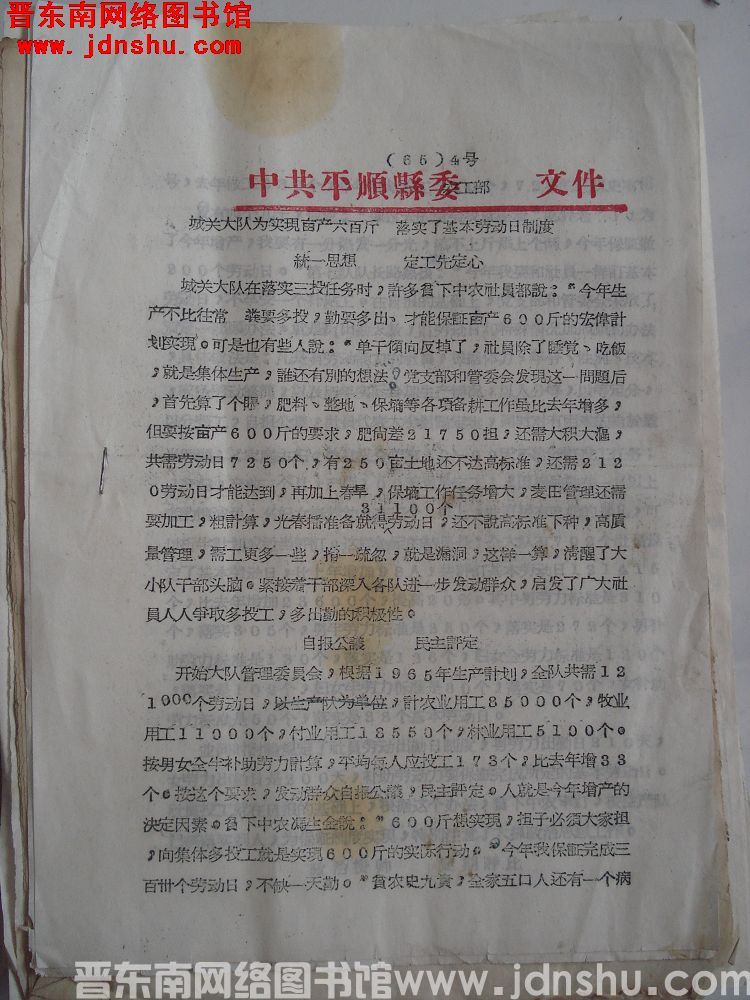 晋东南网络图书馆
www.jdnshu.com
(65)4号
中共平順縣委 工部 文件
城关大队为实現亩产六百斤 落实了基本劳动日制度
統一思想 定工先定心
城关大队在落实三投任务时，許多貧下中农社員都說：“今年生
产不比往常 粪要多投，勤要多出、才能保証亩产600斤的宏偉計
划实現。可是也有些人說：“单干傾向反掉了，社員除了睡觉、吃飯
，就是集体生产，誰还有別的想法。党支部和管委会发現这一問題后
，首先算了个賬，肥料、整地、保墒等各項备耕工作虽比去年增多，
但要按亩产600斤的要求，肥尙差21750担，还需大积大漚，
共需劳动日7250个，有250亩土地还不达高标准，还需212
0劳动日才能达到，再加上春旱，保墒工作任务增大，麦田管理还需
31100个
要加工，粗計算，光春播准备就得劳动日，还不說高标准下种，高质
量管理，需工更多一些，稍一疏忽，就是漏洞，这样一算，清醒了大
小队干部头脑。紧接着干部深入各队进一步发动群众，启发了广大社
員人人爭取多投工，多出勤的积极性。
自报公議 民主評定
开始大队管理委員会，根据1965年生产計划，全队共需12
1000个劳动日，以生产队为单位，計农业用工85000个，牧业
用工11000个，付业用工18550个，林业用工5100个。
按男女全半补助劳力計算，平均每人应投工173个，比去年增33
个。按这个要求，发动群众自报公議，民主評定。人就是今年增产的
决定因素。貧下中农馮生金說：“600斤想实現，担子必須大家担
，向集体多投工就是实現600斤的实际行动。“今年我保証完成三
百卅个劳动日，不缺一天勤。“貧农史九貴，全家五口人还有一个病
晋东南网络图书馆www.jdnshu.com